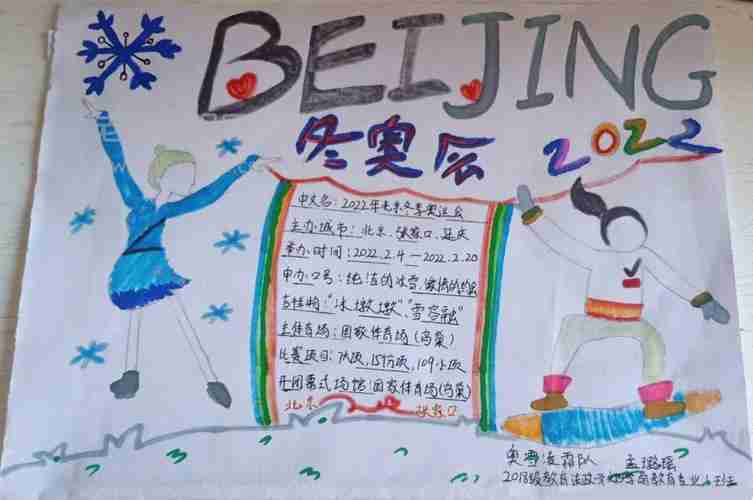 BEIJING
冬奥会 2022
中文名：2022年北京冬季奥运会
主办城市：北京、张家口、延庆
举办时间：2022.2.4—2022.2.20
申办口号：纯洁的冰雪，激情的约会
吉祥物："冰墩墩"、"雪容融"
主体育场：国家体育场（鸟巢）
比赛项目：7大项，15分项，109小项
开闭幕式场馆：国家体育场（鸟巢）
北京 张家口
奥雪凌霜队 孟璐瑶
2018级教育 教育专业